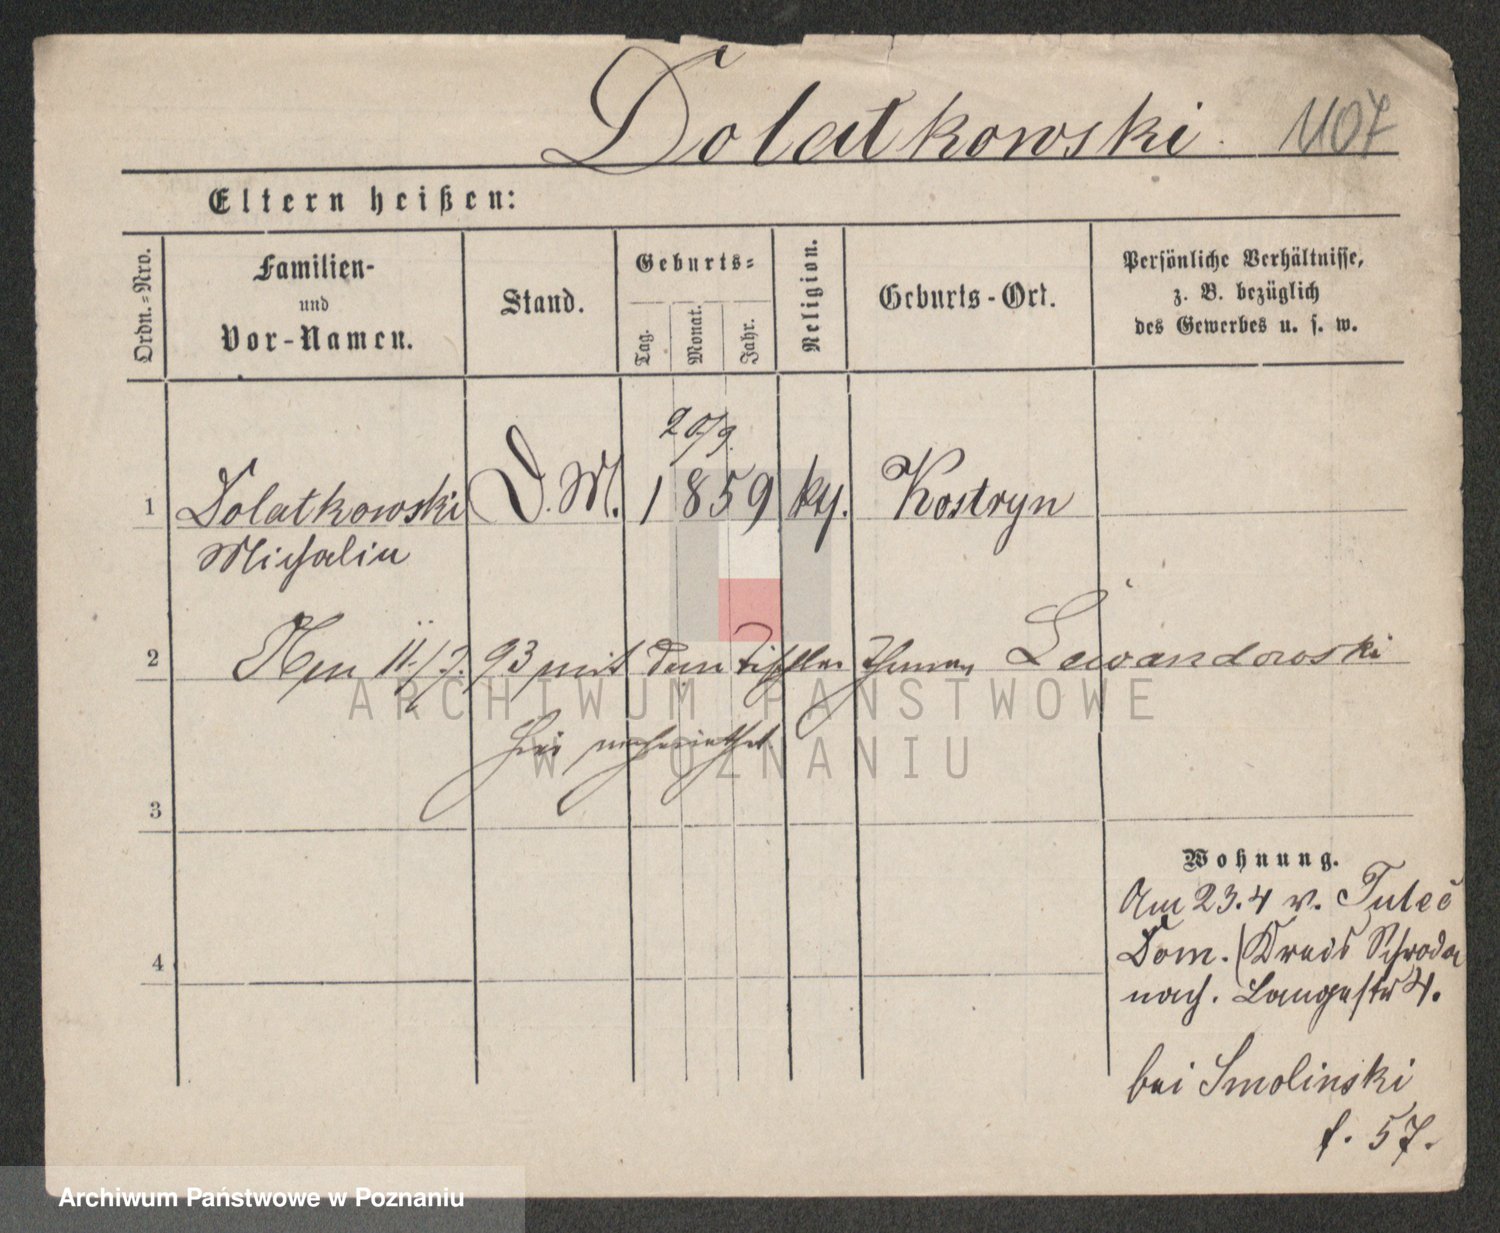 Dolatkowski. 1107
Eltern heißen:
Ordn.-Nro.
Familien-
und
Vor-Namen.
Stand.
Geburts-
Tag.
Monat.
Jahr.
Religion.
Geburts-Ort.
Persönliche Verhältnisse,
z. B. bezüglich
des Gewerbes u. s. w.
20/9.
1 Dolatkowski D. M. 1859 kth. Kostryn
Michalin
2 Am 11./7. 93 mit dem Tischler Lewandowski
hier verheirathet
3
Wohnung.
Am 23.4 v. Tulec
Dom. (Kreis Schroda
nach. Langestr 4.
4
bei Smolinski
f. 57.
ARCHIWUM PAŃSTWOWE
W POZNANIU
Archiwum Państwowe w Poznaniu